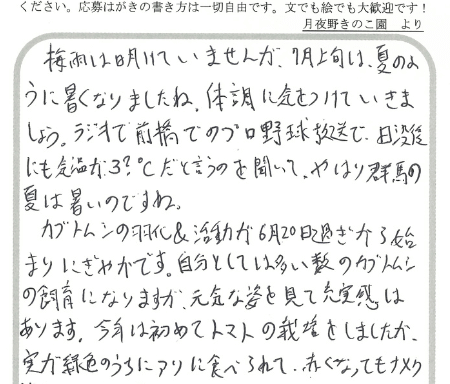 ください。応募はがきの書き方は一切自由です。文でも絵でも大歓迎です！
月夜野きのこ園　より
梅雨は明けていませんが、7月上旬は、夏のよ
うに暑くなりましたね。体調に気をつけていきま
しょう。ラジオで前橋でのプロ野球放送で、日没後
にも気温が3?℃だと言うのを聞いて、やはり群馬の
夏は暑いのですね。
カブトムシの羽化&活動が6月20日過ぎから始
まりにぎやかです。自分としては多い数のカブトムシ
の飼育になりますが、元気な姿を見て充実感は
あります。今年は初めてトマトの栽培をしましたが、
実が緑色のうちにアリに食べられて、赤くなってもナメク